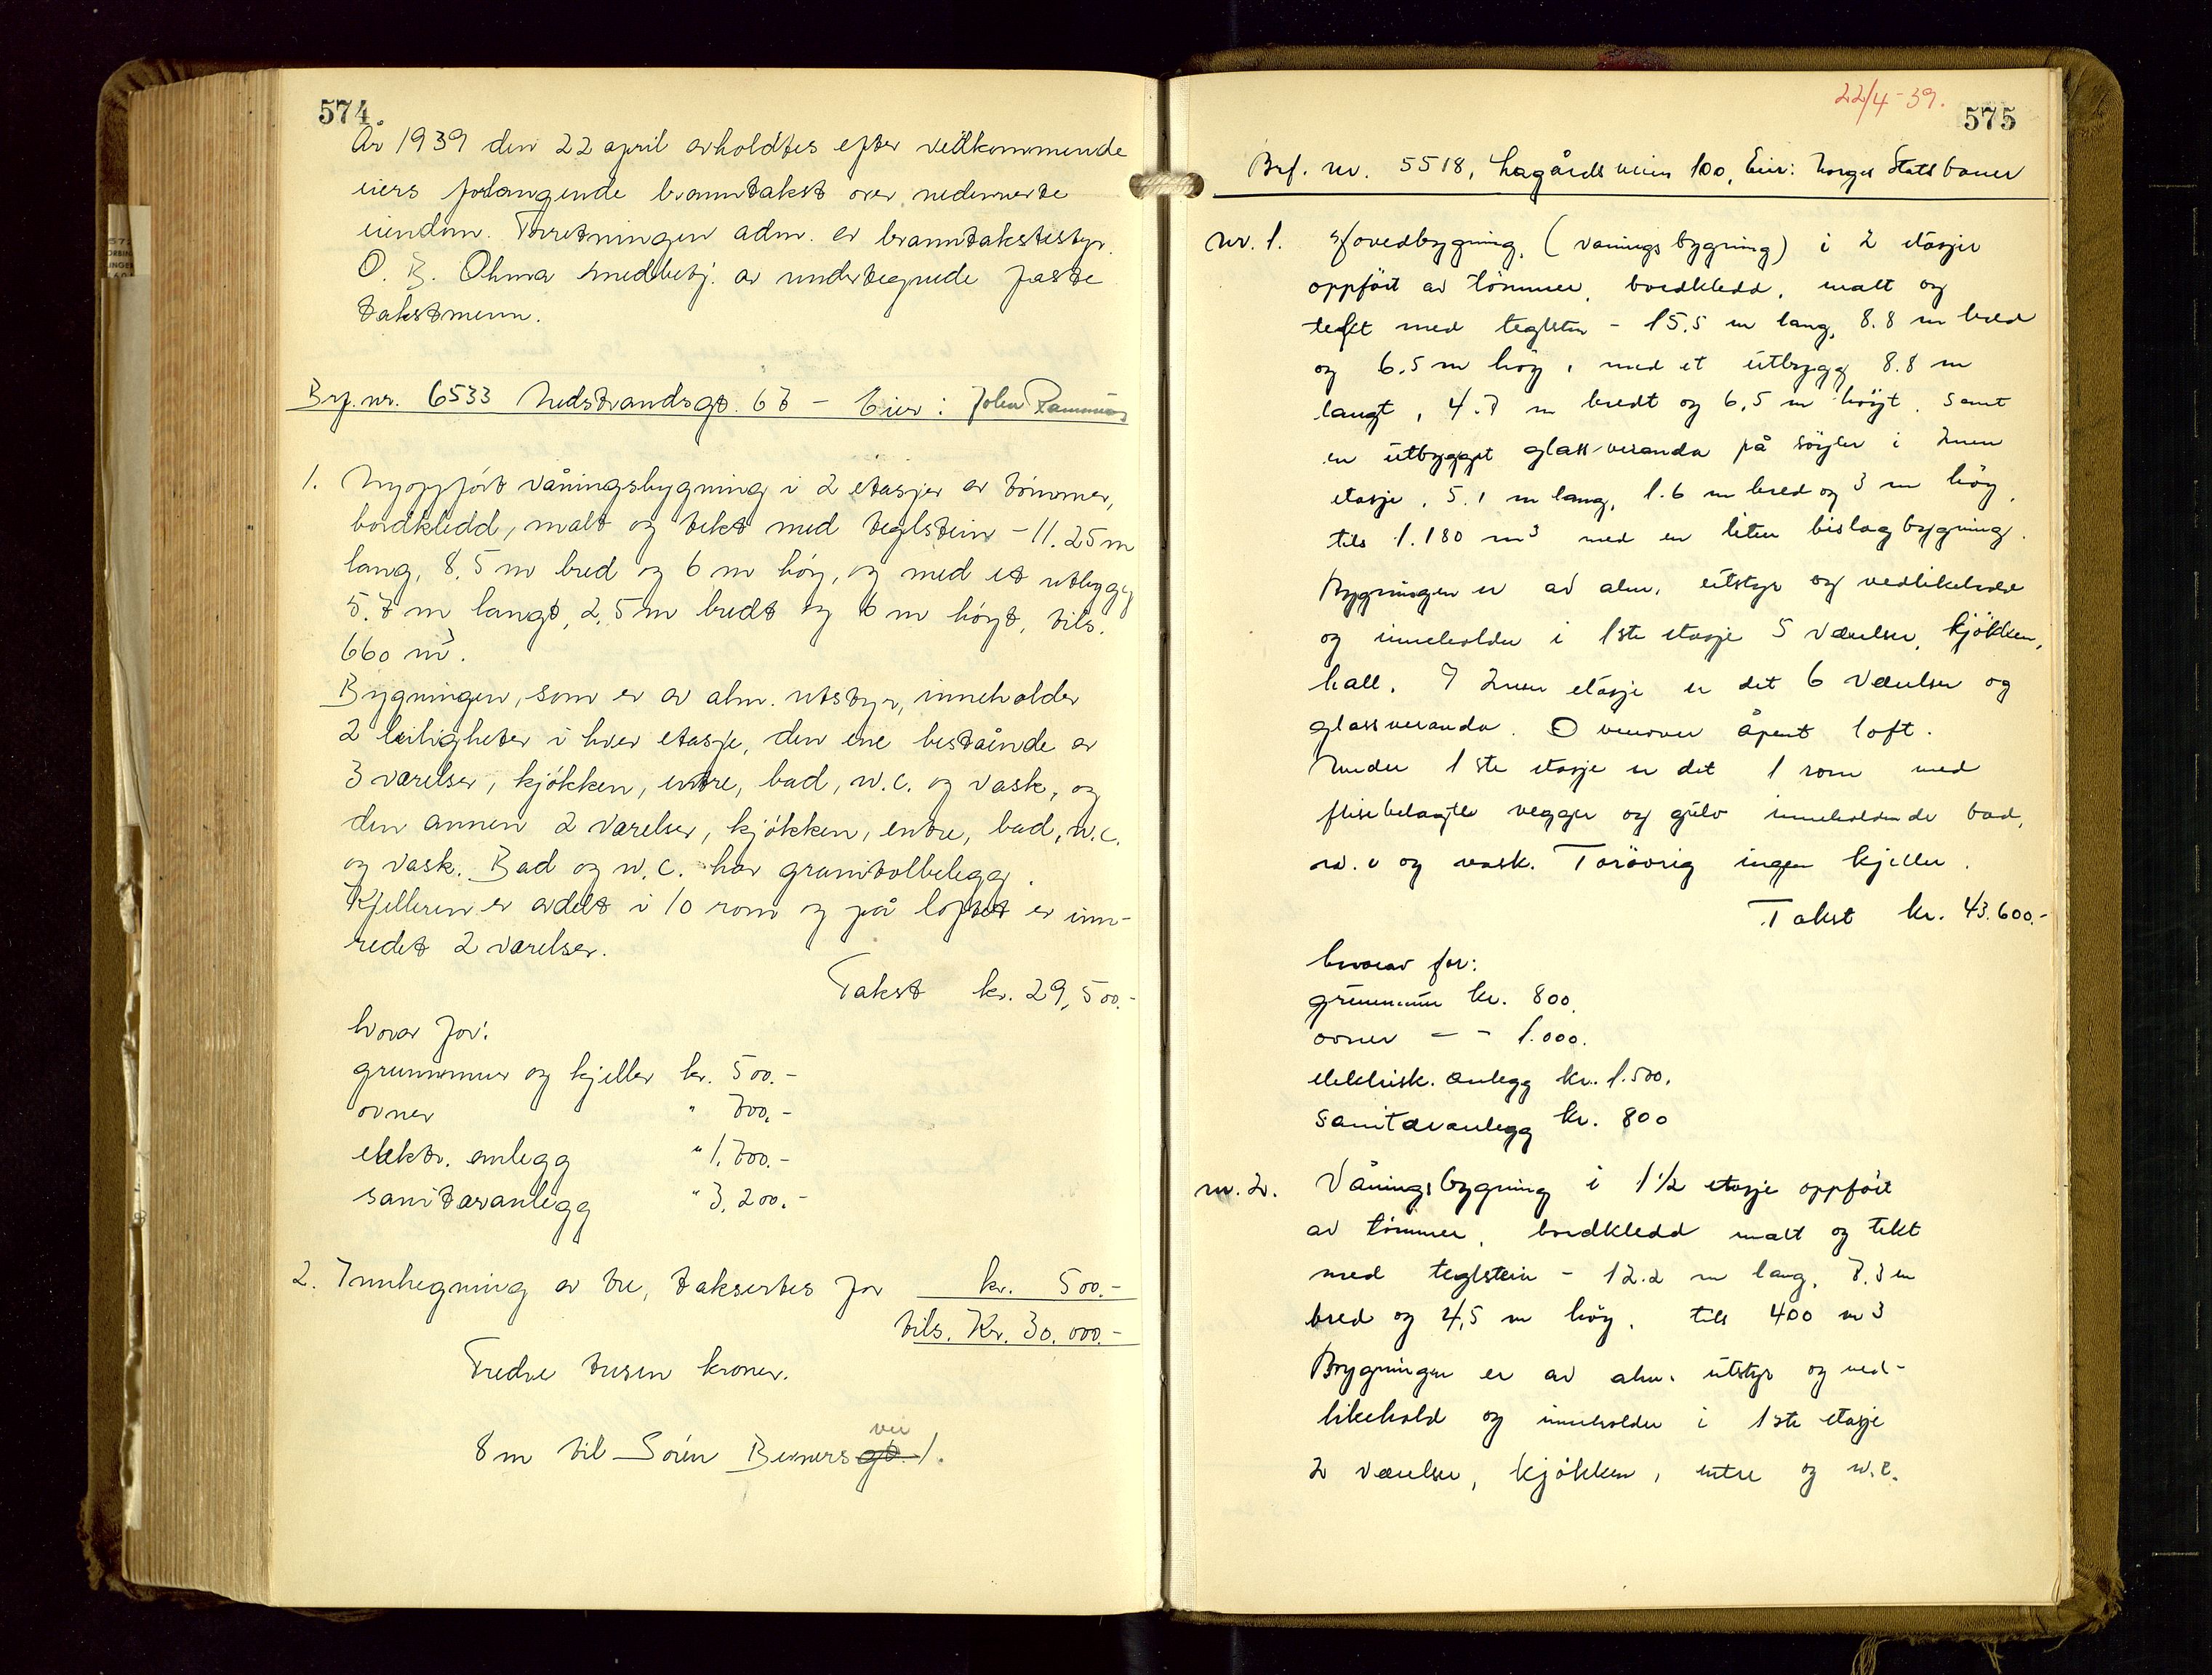 574.
År 1939 den 22 april avholdtes efter vedkommende
eiers forlangende branntakst over nedennevnte
eiendom. Forretningen adm. av branntakstbestyr.
O. B. Ohma medbetj. av undertegnede faste
takstmenn.
Brf. nr. 6533 Nedstrandsgt. 67 - Eier: John Rammus
1. Nyoppført våningsbygning i 2 etasjer av tømmer,
bordkledd, malt og tekt med teglstein - 11.25 m
lang, 8,5 m bred og 6 m høy, og med et utbygg
5.7 m langt, 2,5 m bredt og 6 m høyt, tils.
660 m³.
Bygningen, som er av alm. utstyr, inneholder
2 leiligheter i hver etasje, den ene bestående av
3 værelser, kjøkken, entre, bad, w.c. og vask, og
den annen 2 værelser, kjøkken, entre, bad, w.c.
og vask. Bad og w.c. har granitolbelegg.
Kjelleren er avdelt i 10 rom og på loftet er inn-
redet 2 værelser.
Takst kr. 29,500.-
hvorav for:
grunnmur og kjeller kr. 500.-
ovner " 700.-
elektr. anlegg " 1.700.-
sanitæranlegg " 3,200.-
2. Innhegning av tre, takseres for kr. 500.-
tils. Kr. 30.000.-
Tredve tusen kroner.
vei
8 m til Sören Berners gt. 1.
22/4-39.
575
Brf. nr. 5518, Lagårdsveien 100, Eier: Norges Statsbaner
nr. 1. Hovedbygning, (vånings bygning) i 2 etasjer
oppført av tømmer, bordkledd, malt og
tekt med teglsten - 15.5 m lang, 8.8 m bred
og 6.5 m høy, med et utbygg 8.8 m
langt, 4.7 m bredt og 6,5 m høyt. samt
en utbygget glass-veranda på søyler i 2nen
etasje, 5.1 m lang, 1.6 m bred og 3 m høy,
tils 1.180 m³ med en liten bislagbygning.
Bygningen er av alm. utstyr og vedlikehold
og inneholder i 1ste etasje 5 værelser, kjøkken,
hall. I 2nen etasje er det 6 værelser og
glassveranda. Ovenover åpent loft.
Under 1ste etasje er det 1 rom med
flisebelagte vegger og gulv inneholdende bad,
w.c og vask. Forøvrig ingen kjeller.
Takst kr. 43.600.-
hvorav for:
grunnmur kr. 800.
ovner - - 1.000.
elektrisk. anlegg kr. 1.500.
sanitæranlegg kr. 800
nr. 2. Våningsbygning i 1 1/2 etasje oppført
av tømmer, bordkledd malt og tekt
med teglstein - 12.2 m lang, 7.3 m
bred og 4,5 m høy. tils 400 m3
Bygningen er av alm. utstyr og ved-
likehold og inneholder i 1ste etasje
2 værelser, kjøkken, entre og w.c.